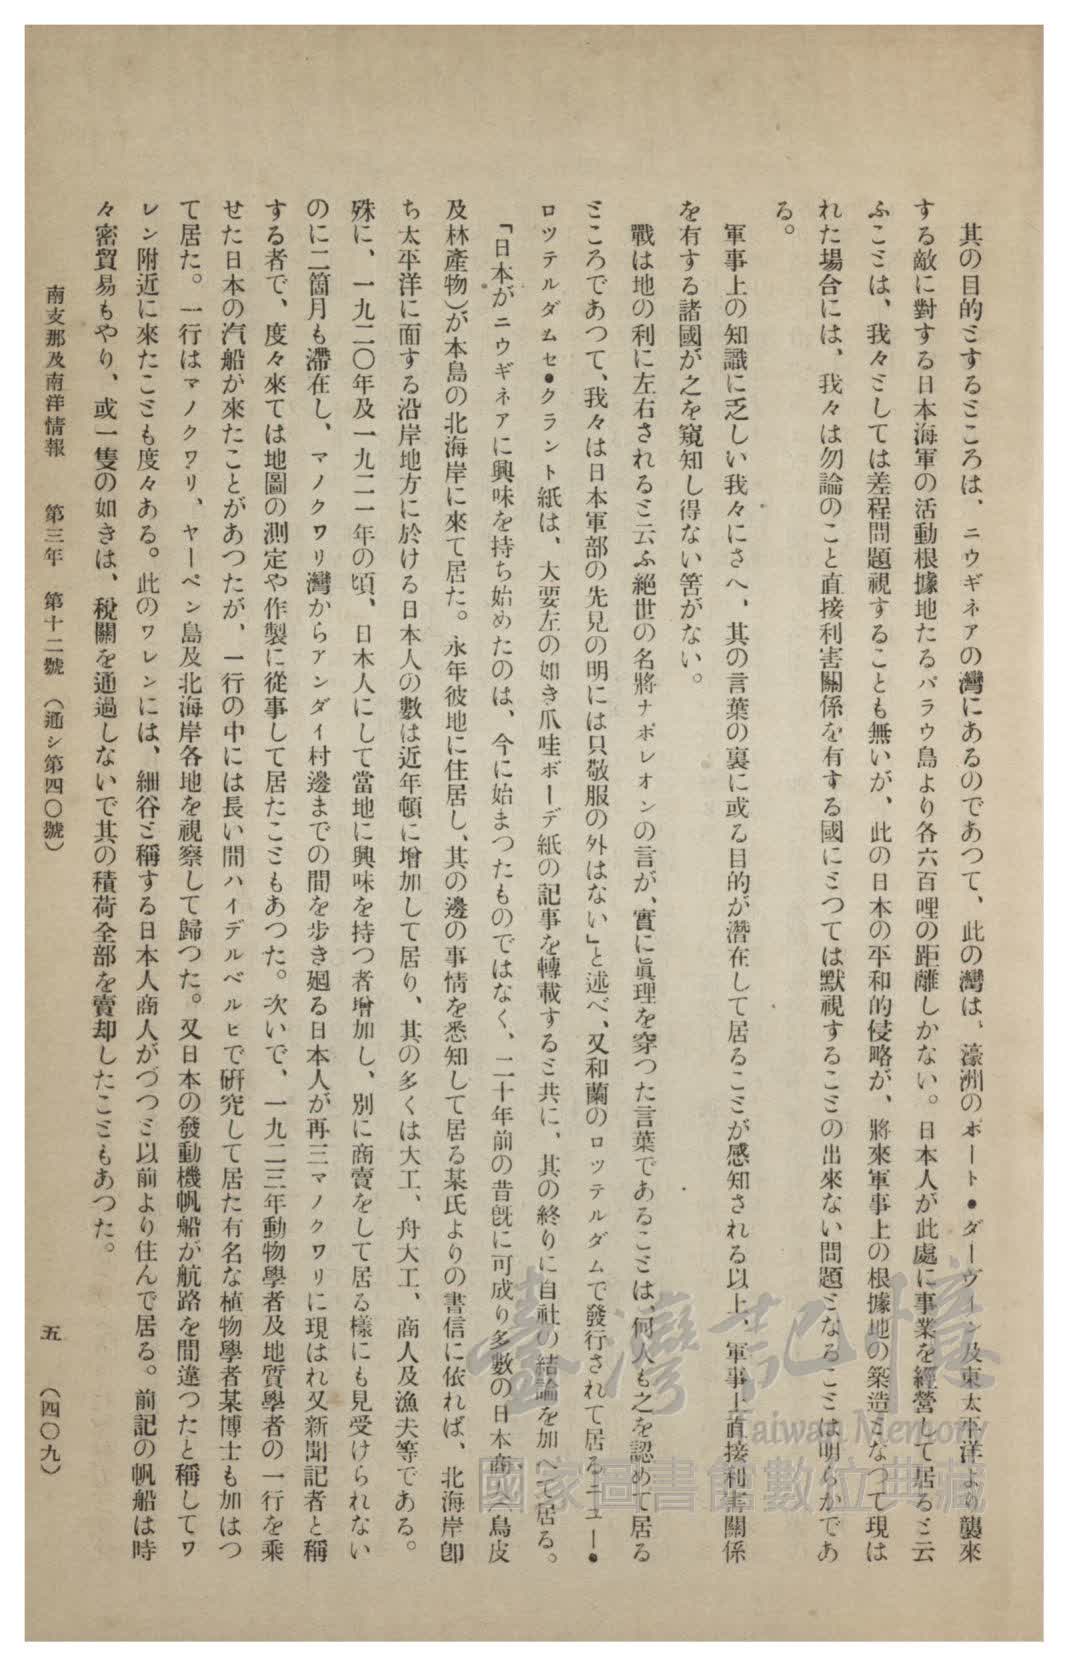 其の目的とするところは、ニウギネアの灣にあるのであつて、此の灣は、濠洲のポート・ダーヴイン及東太平洋より襲來
する敵に對する日本海軍の活動根據地たるパラウ島より各六百哩の距離しかない。日本人が此處に事業を經營して居ると云
ふことは、我々としては差程問題視することも無いが、此の日本の平和的侵略が、將來軍事上の根據地の築造となつて現は
れた場合には、我々は勿論のこと直接利害關係を有する國にとつては默視することの出來ない問題となることは明らかであ
る。
軍事上の知識に乏しい我々にさへ、其の言葉の裏に或る目的が潛在して居ることが感知される以上、軍事上直接利害關係
を有する諸國が之を窺知し得ない筈がない。
戰は地の利に左右されると云ふ絕世の名將ナポレオンの言が、實に眞理を穿つた言葉であることは、何人も之を認めて居る
ところであつて、我々は日本軍部の先見の明には只敬服の外はない」と述べ、又和蘭のロツテルダムで發行されて居るニユー・
ロツテルダムセ・クラント紙は、大要左の如き爪哇ボーデ紙の記事を轉載すると共に、其の終りに自社の結論を加へて居る。
「日本がニウギネアに興味を持ち始めたのは、今に始まつたものではなく、二十年前の昔旣に可成り多數の日本商人(鳥皮
及林產物)が本島の北海岸に來て居た。永年彼地に住居し、其の邊の事情を悉知して居る某氏よりの書信に依れば、北海岸卽
ち太平洋に面する沿岸地方に於ける日本人の數は近年頓に增加して居り、其の多くは大工、舟大工、商人及漁夫等である。
殊に、一九二〇年及一九二一年の頃、日本人にして當地に興味を持つ者增加し、別に商賣をして居る樣にも見受けられない
のに二箇月も滯在し、マノクワリ灣からアンダイ村邊までの間を步き廻る日本人が再三マノクワリに現はれ又新聞記者と稱
する者で、度々來ては地圖の測定や作製に從事して居たこともあつた。次いで、一九二三年動物學者及地質學者の一行を乘
せた日本の汽船が來たことがあつたが、一行の中には長い間ハイデルベルヒで硏究して居た有名な植物學者某博士も加はつ
て居た。一行はマノクワリ、ヤーペン島及北海岸各地を視察して歸つた。又日本の發動機帆船が航路を間違つたと稱してワ
レン附近に來たことも度々ある。此のワレンには、細谷と稱する日本人商人がづつと以前より住んで居る。前記の帆船は時
々密貿易もやり、或一隻の如きは、稅關を通過しないで其の積荷全部を賣却したこともあつた。
南支那及南洋情報 第三年 第十二號 (通シ第四〇號) 五 (四〇九)
臺灣記憶
Taiwan Memory
國家圖書館數位典藏